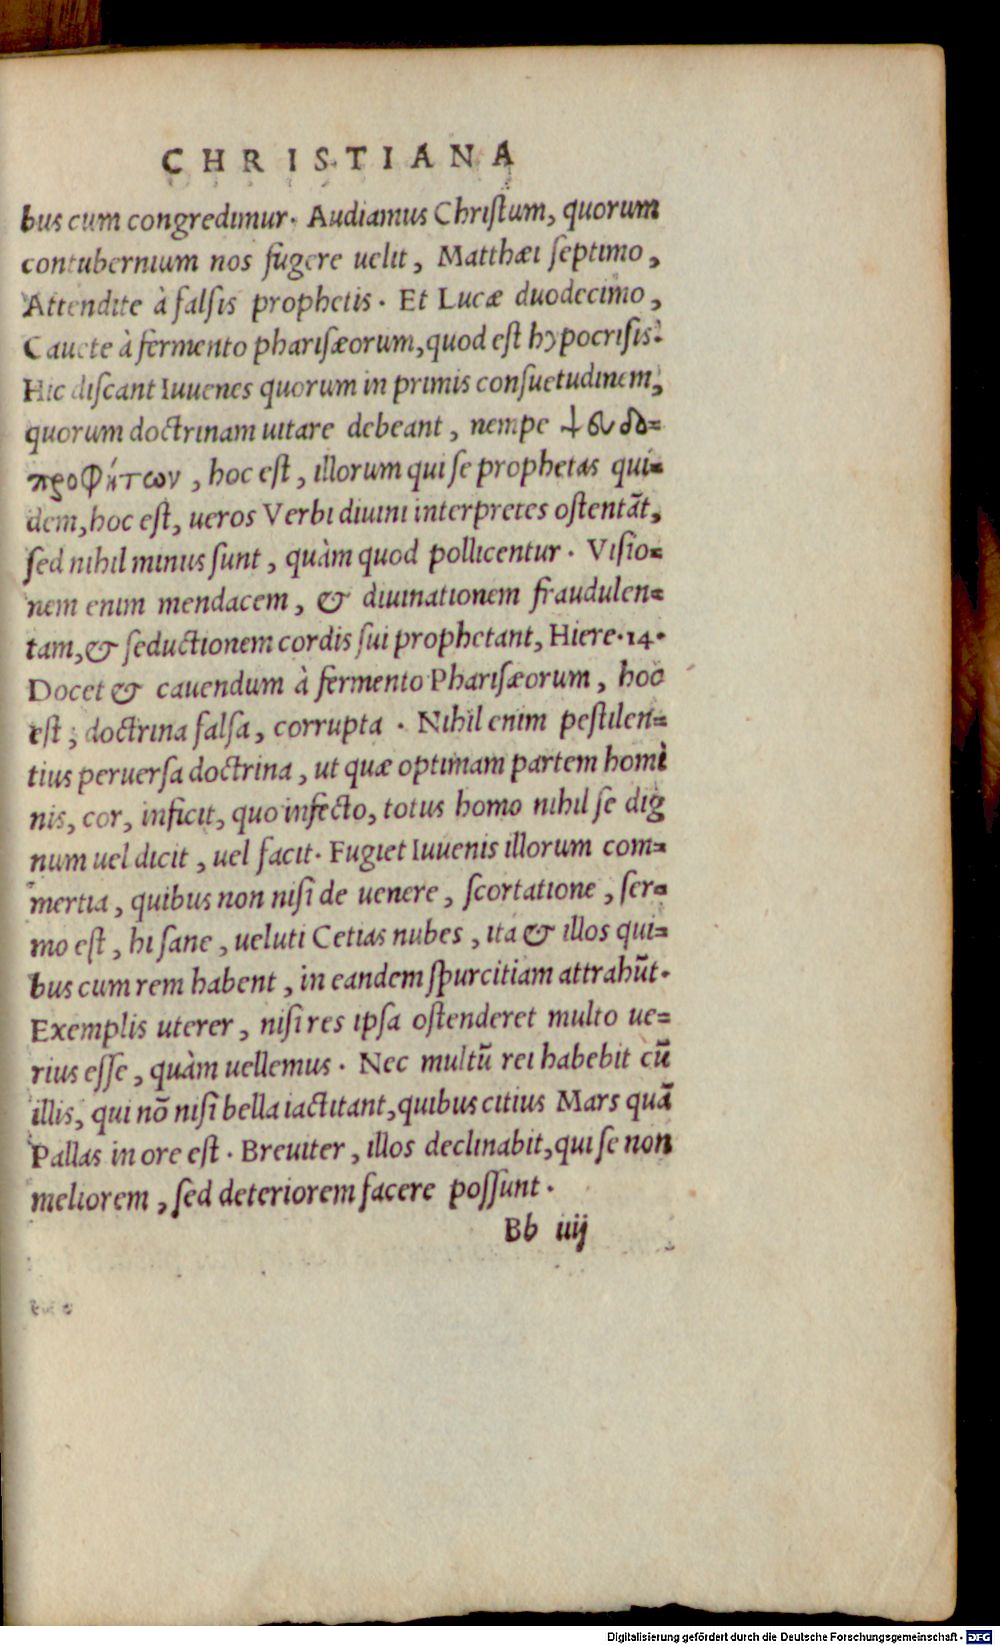 CHRISTIANA
bus cum congredimur. Audiamus Christum, quorum
contubernium nos fugere uelit, Matthæi septimo,
Attendite à falsis prophetis. Et Lucæ duodecimo,
Cauete à fermento pharisæorum, quod est hypocrisis.
Hic discant Iuuenes quorum in primis consuetudinem,
quorum doctrinam uitare debeant, nempe ψευδο=
προφήτων, hoc est, illorum qui se prophetas qui=
dem, hoc est, ueros Verbi diuini interpretes ostentāt,
sed nihil minus sunt, quàm quod pollicentur. Visio=
nem enim mendacem, & diuinationem fraudulen=
tam, & seductionem cordis sui prophetant, Hiere.14.
Docet & cauendum à fermento Pharisæorum, hoc
est, doctrina falsa, corrupta. Nihil enim pestilen=
tius peruersa doctrina, ut quæ optimam partem homi
nis, cor, inficit, quo infecto, totus homo nihil se dig
num uel dicit, uel facit. Fugiet Iuuenis illorum com=
mertia, quibus non nisi de uenere, scortatione, ser=
mo est, hi sane, ueluti Cetias nubes, ita & illos qui=
bus cum rem habent, in eandem spurcitiam attrahūt.
Exemplis uterer, nisi res ipsa ostenderet multo ue=
rius esse, quàm uellemus. Nec multū rei habebit cū
illis, qui nō nisi bella iactitant, quibus citius Mars quā
Pallas in ore est. Breuiter, illos declinabit, qui se non
meliorem, sed deteriorem facere possunt.
Bb iiij
Digitalisierung gefördert durch die Deutsche Forschungsgemeinschaft - DFG